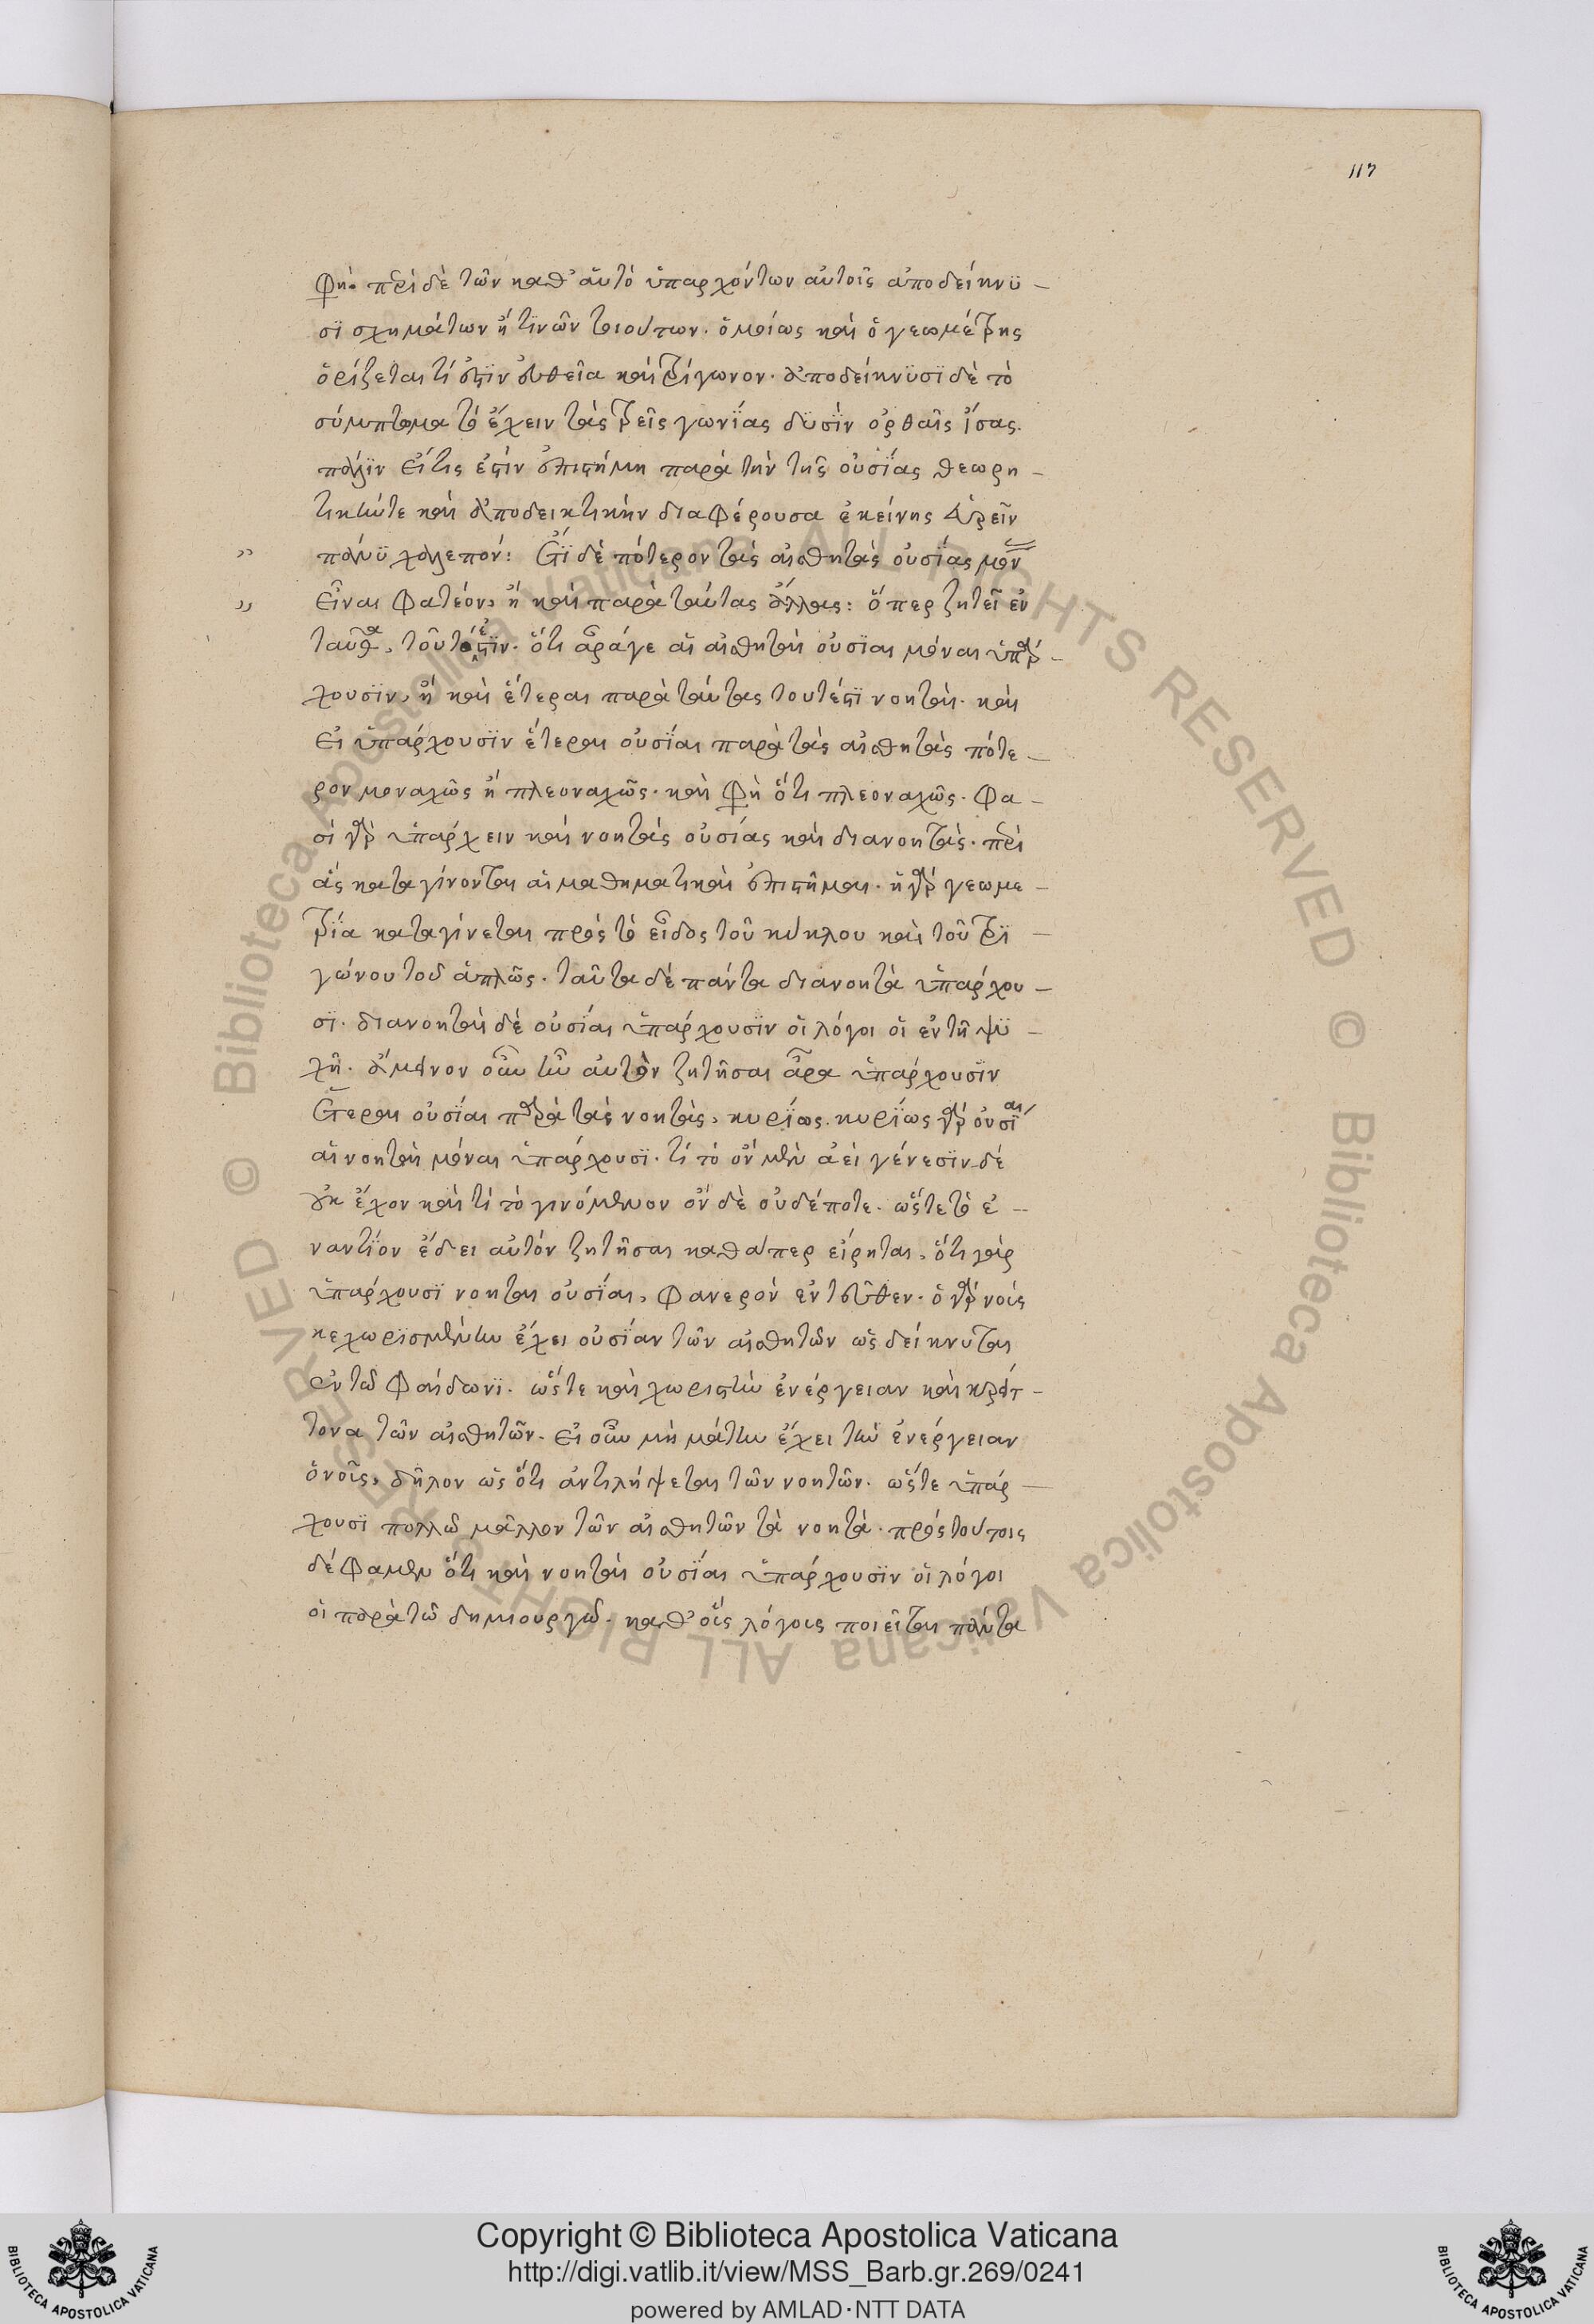 117
φη. περὶ δὲ τῶν καθ' ἁυτὸ ὑπαρχόντων αὐτοῖς ἀποδείκνϋ–
σϊ σχημάτων ἤ τϊνῶν τοιούτων. ὁμοίως καὶ ὁ γεωμέτρης
ὁρίζεται τί ἐστϊν εὐθεῖα καὶ τρίγωνον. ἀποδείκνϋσϊ δὲ τὸ
σύμπτωμα τὸ ἔχειν τὰς τρεῖς γωνΐας δϋσῒν ὀρθαῖς ἴσας.
πάλϊν εἴ τις ἐστὶν ἐπιστήμη παρὰ τὴν τῆς οὐσΐας θεωρη–
τικήν τε καὶ ἀποδεικτικὴν διαφέρουσα ἐκείνης εὑρεῖν
" πάνϋ χαλεπόν: Ἔτϊ δὲ πότερον τὰς αἰσθητὰς οὐσΐας μόν
" εἶναι φατέον, ἢ καὶ παρὰ ταύτας ἄλλας: ὅπερ ζητεῖ ἐν
ταῦθα, τοῦτ ἔστϊν. ὅτι ἆράγε αἱ αἰσθηταὶ οὐσίαι μόναι ὑπάρ–
χουσϊν, ἢ καὶ ἕτεραι παρὰ ταύτας τουτέστϊ νοηταί. καὶ
εἰ ὑπάρχουσϊν ἕτεραι οὐσΐαι παρὰ τὰς αἰσθητὰς πότε–
ρον μοναχῶς ἢ πλεοναχῶς. καὶ φὴ ὅτι πλεοναχῶς. φα–
σὶ γὰρ ὑπάρχειν καὶ νοητὰς οὐσίας καὶ διανοητάς. περὶ
ἃς καταγίνονται αἱ μαθηματικαὶ ἐπιστῆμαι. ἡ γὰρ γεωμε–
τρΐα καταγίνεται πρὸς τὸ εἶδος τοῦ κύκλου καὶ τοῦ τρϊ–
γώνου τοῦ ἁπλῶς. ταῦτα δὲ πάντα διανοητὰ ὑπάρχου–
σϊ. διανοηταὶ δὲ οὐσίαι ὑπάρχουσϊν οἱ λόγοι οἱ ἐν τῇ ψϋ–
χῇ. ἄμεινον οὖν ἦν αὐτὸν ζητῆσαι ἆρα ὑπάρχουσϊν
ἕτεραι οὐσΐαι παρὰ τὰς νοητὰς, κυρίως. κυρΐως γὰρ οὐσΐαι
αἱ νοηταὶ μόναι ὑπάρχουσϊ. τί τὸ ὂν μὲν ἀεὶ γένεσϊν δὲ
οὐκ ἔχον καὶ τί τὸ γινόμενον ὂν δὲ οὐδέποτε. ὥστε τὸ ἐ–
ναντΐον ἔδει αὐτὸν ζητῆσαι καθάπερ εἴρηται, ὅτι γὰρ
ὑπάρχουσϊ νοηται οὐσΐαι, φανερὸν ἐντεῦθεν. ὁ γὰρ νοῦς
κεχωρϊσμένην ἔχει οὐσίαν τῶν αἰσθητῶν ὡς δείκνυται
ἐν τῷ φαίδωνϊ. ὥστε καὶ χωριστὴν ἐνέργειαν καὶ κρείτ–
τονα τῶν αἰσθητῶν. εἰ οὖν μὴ μάτην ἔχει τὴν ἐνέργειαν
ὁ νοῦς, δῆλον ὡς ὅτι ἀντιλήψεται τῶν νοητῶν. ὥστε ὑπάρ–
χουσϊ πολλῷ μᾶλλον τῶν αἰσθητῶν τὰ νοητά. πρὸς τούτοις
δὲ φαμὲν ὅτι καὶ νοηταὶ οὐσΐαι ὑπάρχουσϊν οἱ λόγοι
οἱ παρὰ τῷ δημιουργῷ. καθ' οὓς λόγους ποιεῖται πάντα
Copyright © Biblioteca Apostolica Vaticana
http://digi.vatlib.it/view/MSS_Barb.gr.269/0241
powered by AMLAD·NTT DATA